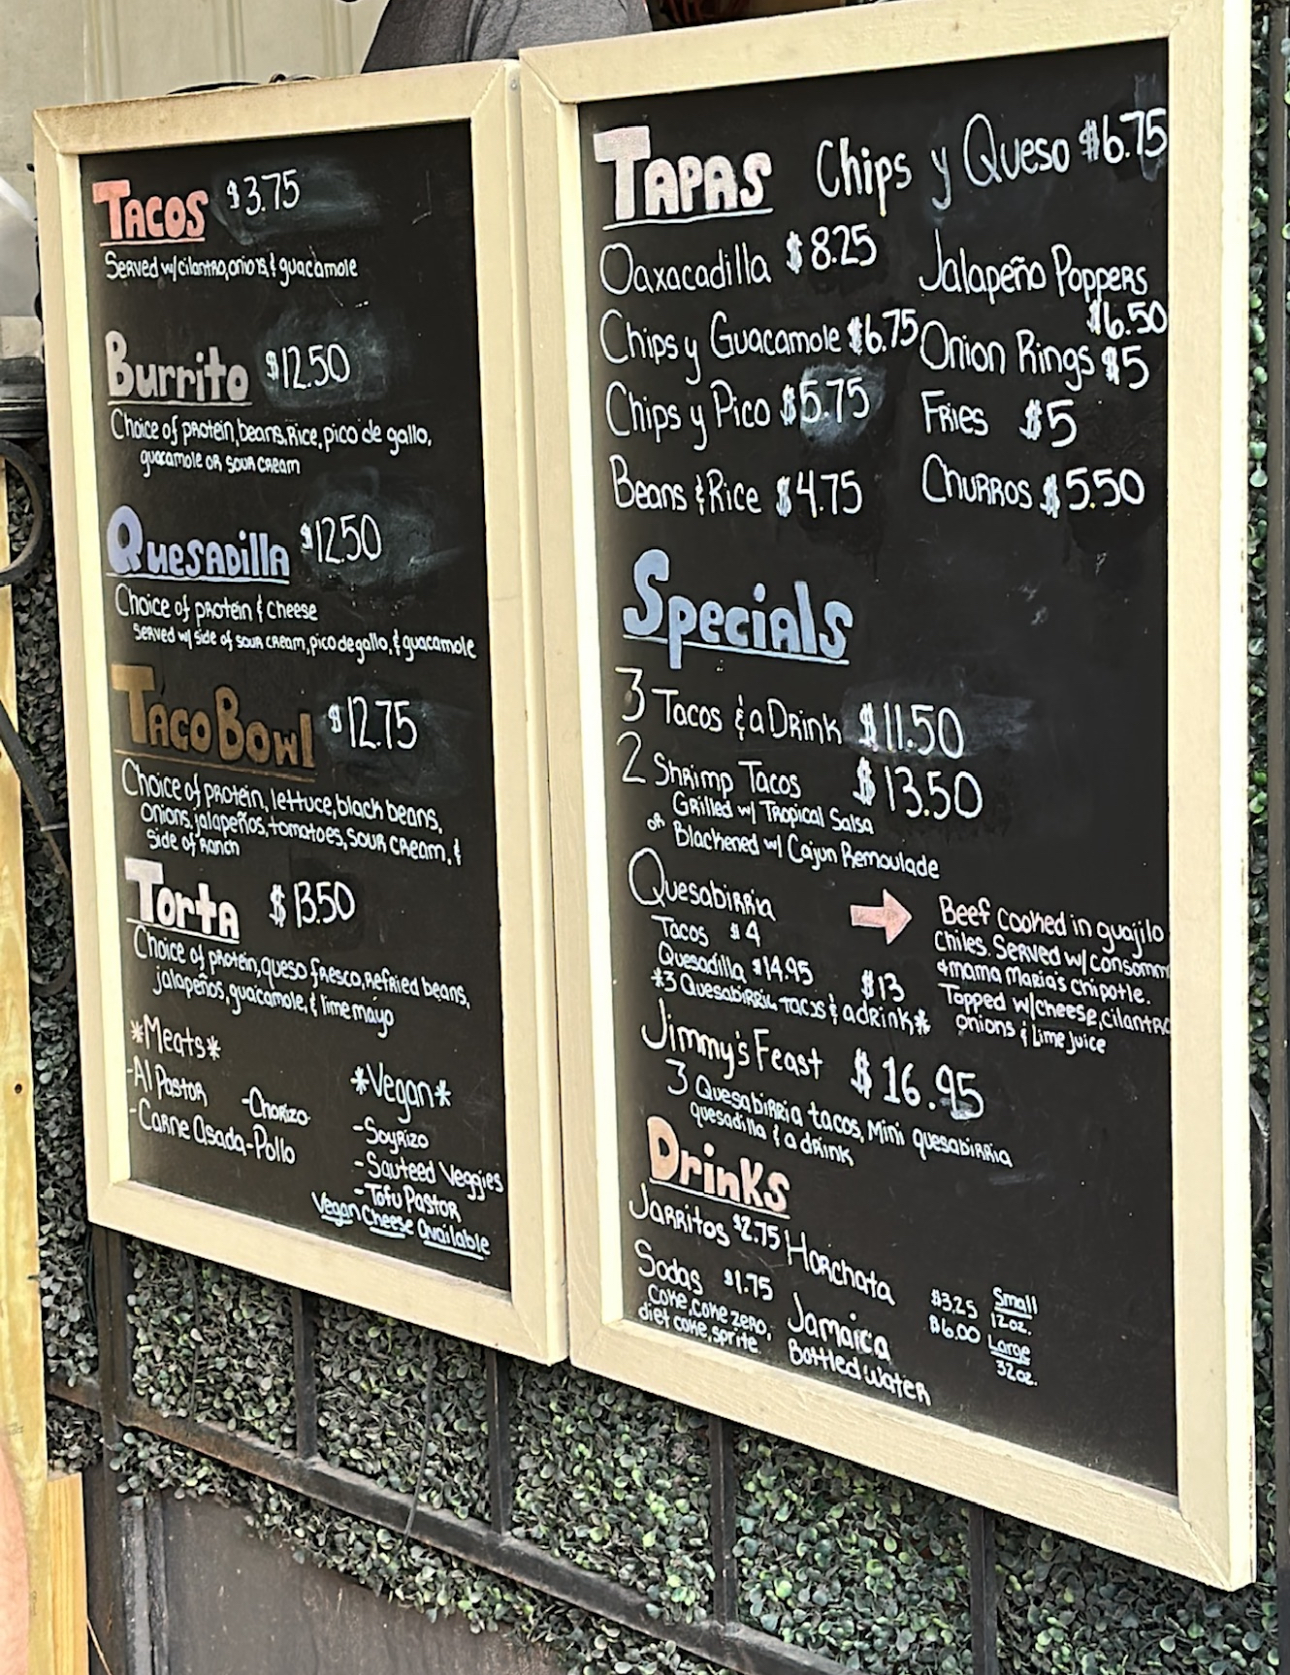 TACOS $3.75
Served w/cilantro, onions, & guacamole
Burrito $12.50
Choice of protein, beans, rice, pico de gallo,
guacamole or sour cream
Quesadilla $12.50
Choice of protein & cheese
Served w/ side of sour cream, pico de gallo, & guacamole
Taco Bowl $12.75
Choice of protein, lettuce, black beans,
onions, jalapeños, tomatoes, sour cream, &
side of ranch
Torta $13.50
Choice of protein, queso fresco, refried beans,
jalapeños, guacamole, & lime mayo
*Meats*
-Al Pastor -Chorizo
-Carne Asada -Pollo
*Vegan*
-Soyrizo
-Sauteed Veggies
-Tofu Pastor
Vegan Cheese Available
TAPAS Chips y Queso $6.75
Oaxacadilla $8.25
Chips y Guacamole $6.75
Chips y Pico $5.75
Beans & Rice $4.75
Jalapeño Poppers
$6.50
Onion Rings $5
Fries $5
Churros $5.50
Specials
3 Tacos & a Drink $11.50
2 Shrimp Tacos $13.50
Grilled w/ Tropical Salsa
or Blackened w/ Cajun Remoulade
Quesabirria
Tacos $4
Quesadilla $14.95
*3 Quesabirria tacos & a drink* $13
Beef cooked in guajilo
chiles. Served w/ consomm
& mama Maria's chipotle.
Topped w/ cheese, cilantro
onions & lime juice
Jimmy's Feast $16.95
3 Quesabirria tacos, Mini quesabirria
quesadilla & a drink
Drinks
Jarritos $2.75
Sodas $1.75
Coke, coke zero,
diet coke, sprite
Horchata
Jamaica
Bottled Water
$3.25 Small
12oz.
$6.00 Large
32oz.